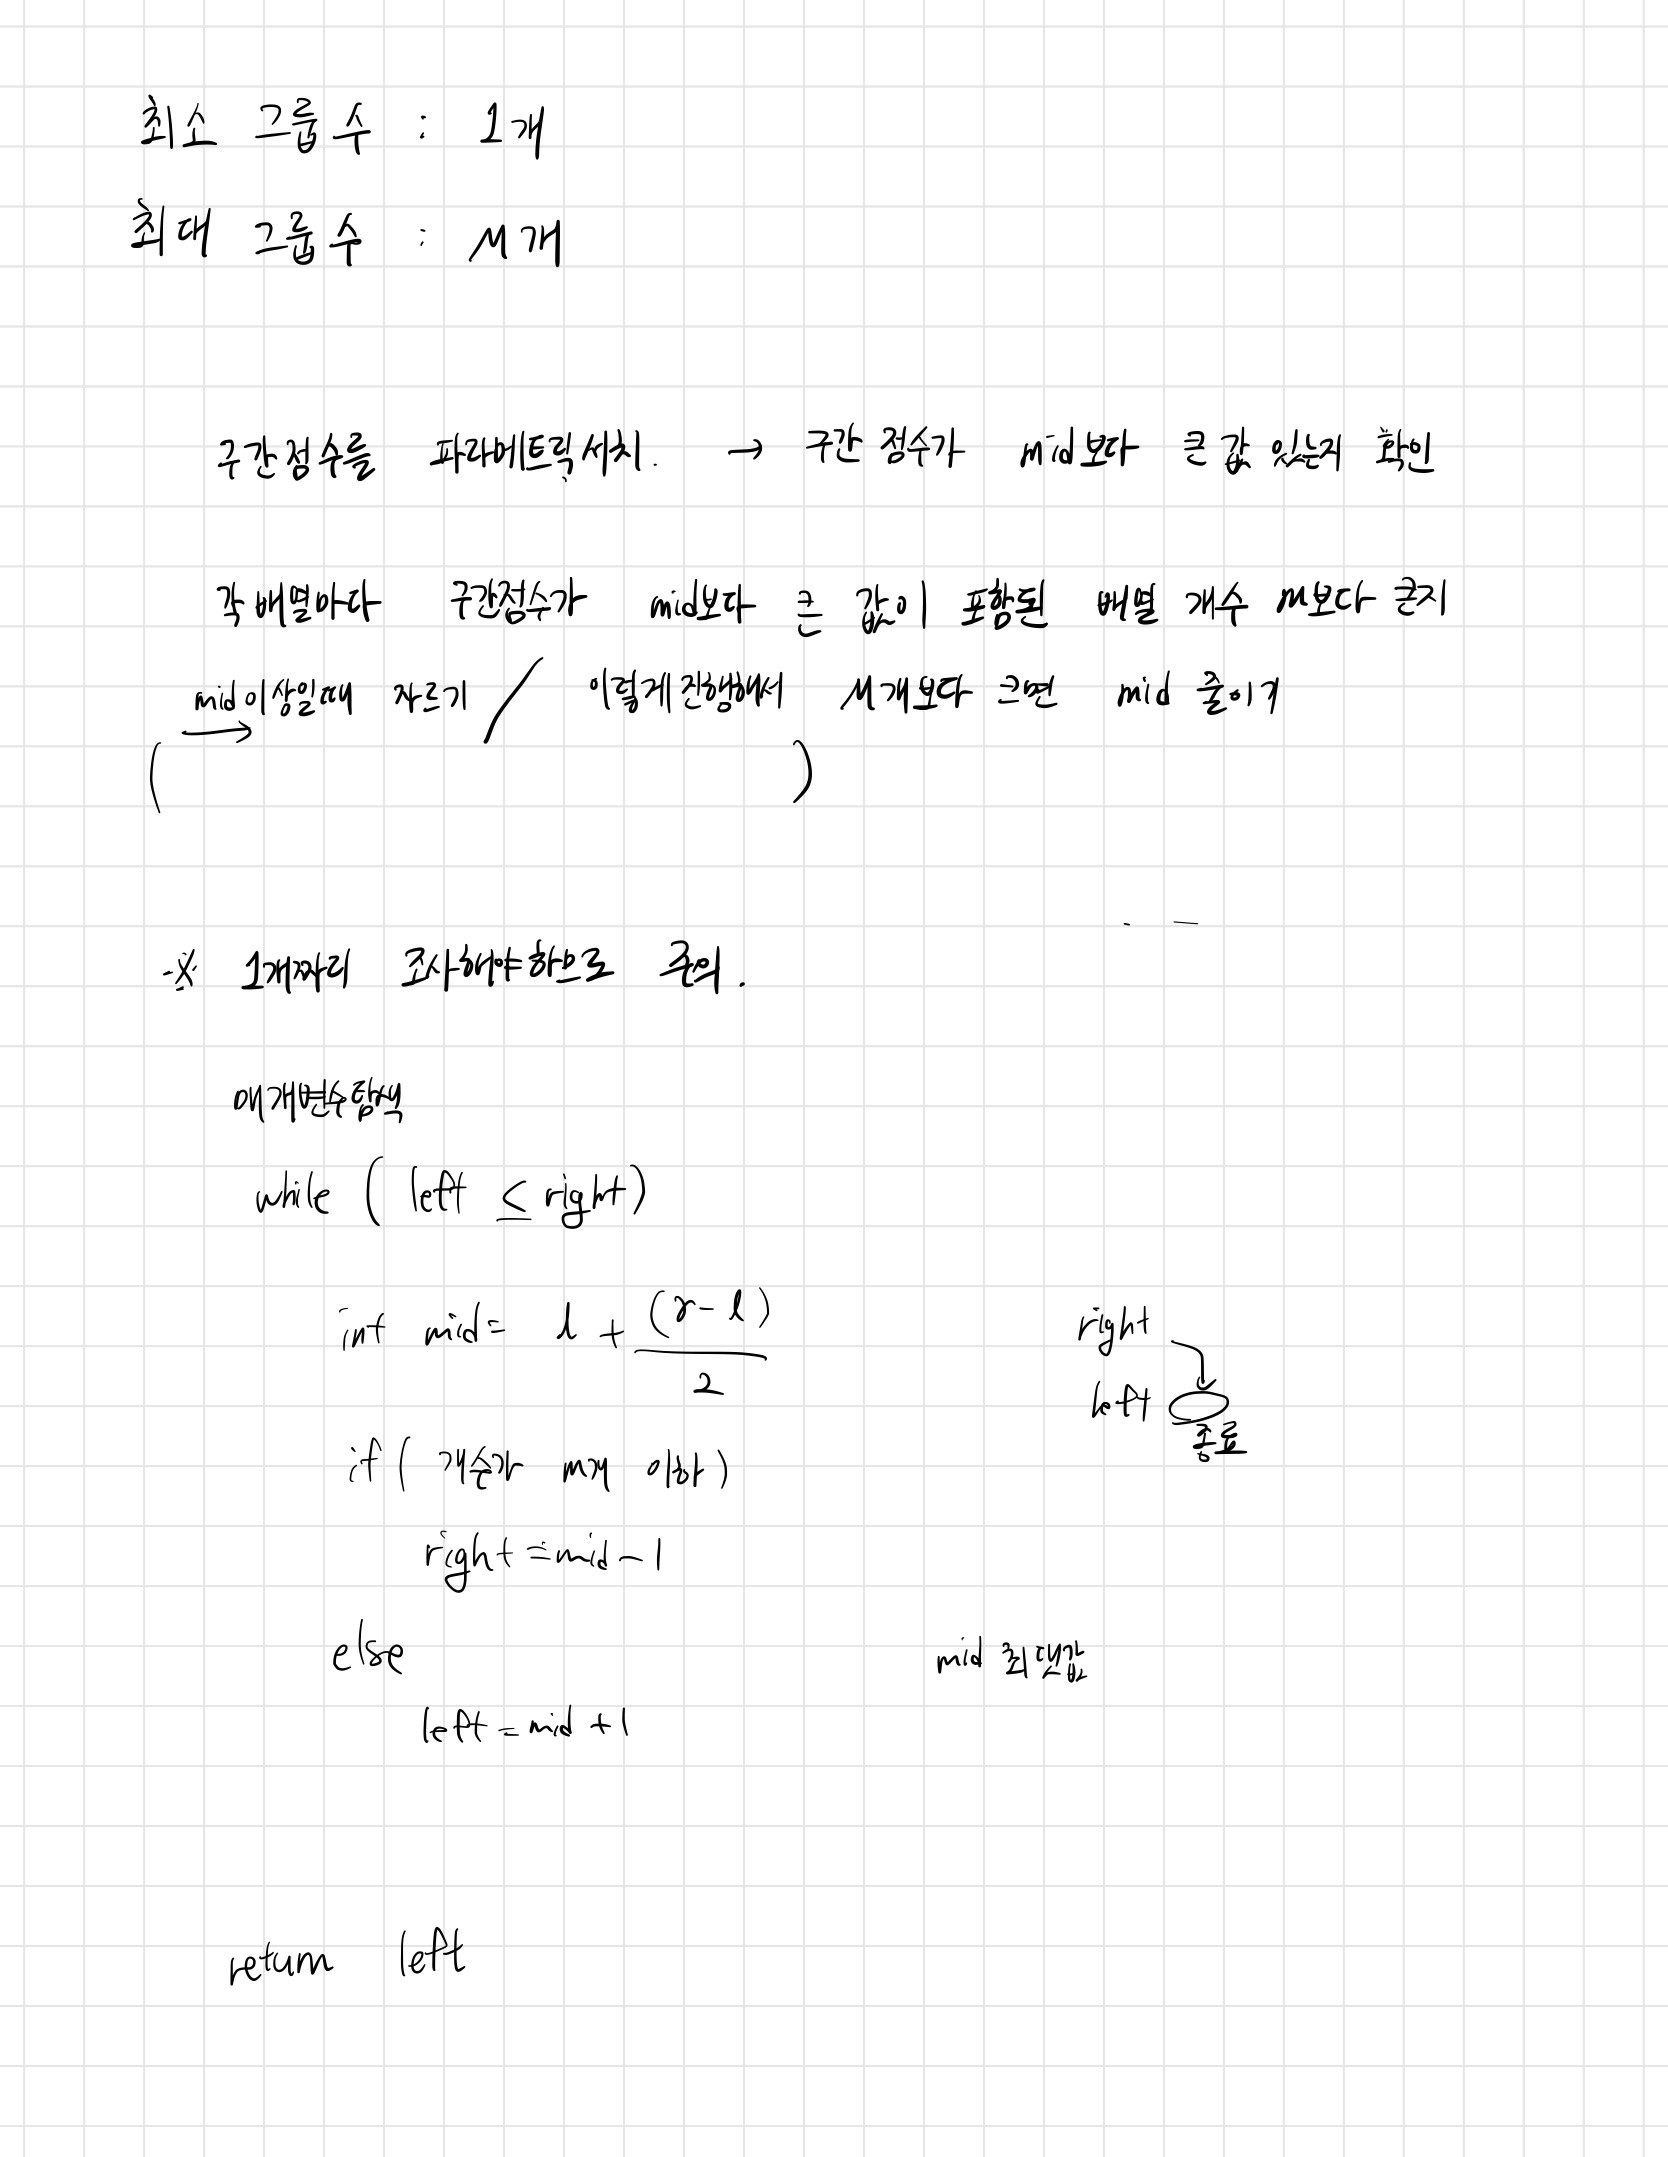 최소 그룹 수 : 1개
최대 그룹 수 : M개
구간점수를 파라메트릭 서치. → 구간 점수가 mid보다 큰 값 있는지 확인
각 배열마다 구간점수가 mid보다 큰 값이 포함된 배열 개수 M보다 큰지
mid 이상일때 자르기 / 이렇게 진행해서 M개보다 크면 mid 줄이기
( )
※ 1개짜리 조사해야함으로 주의.
매개변수탐색
while ( left ≤ right)
int mid = l + (r-l)/2
right
left 종료
if ( 개수가 m개 이하)
right = mid - 1
else
mid 최댓값
left = mid + 1
return left